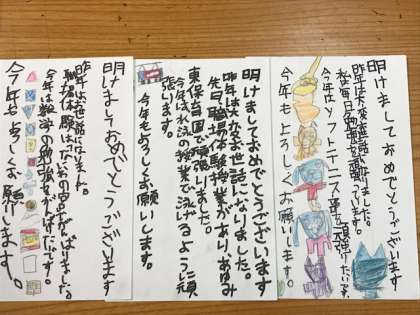 明けましておめでとうございます
昨年は大変お世話になりました。
私は毎日
今年はソフトテニス部を頑張りたいです。
今年もよろしくお願いします。
明けましておめでとうございます
昨年は大変お世話になりました。
先日、職場体験授業があり、あゆみ
東保育園で頑張りました。
今年は水泳の授業で泳げるように頑
張ります。
今年もよろしくお願いします。
明けましておめでとうございます
昨年はお世話になりました。
職場体験は、がんばりました。
今年は数学の勉強をがんばりたいです。
今年もよろしくお願いします。